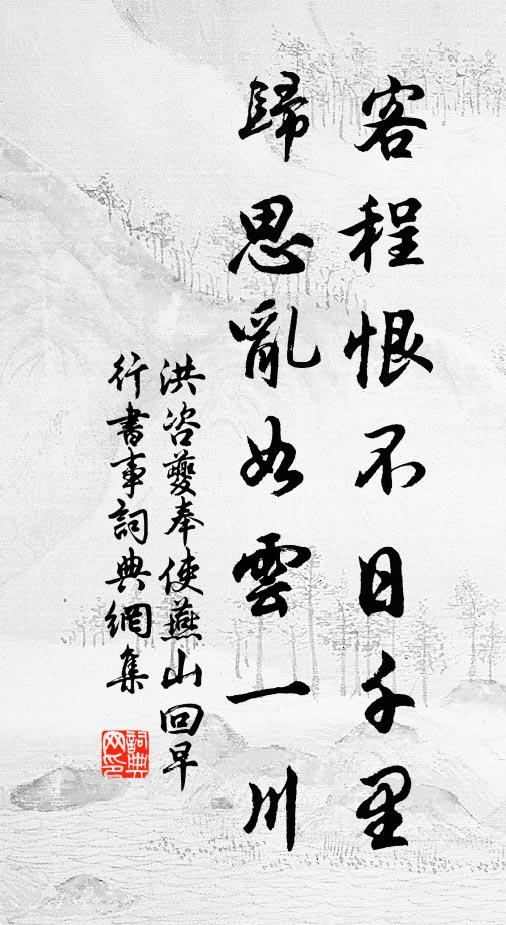 客程恨不日千里
歸思亂如雲一川
洪咨夔奉使燕山回早
行書事詞典網集
詞典网印